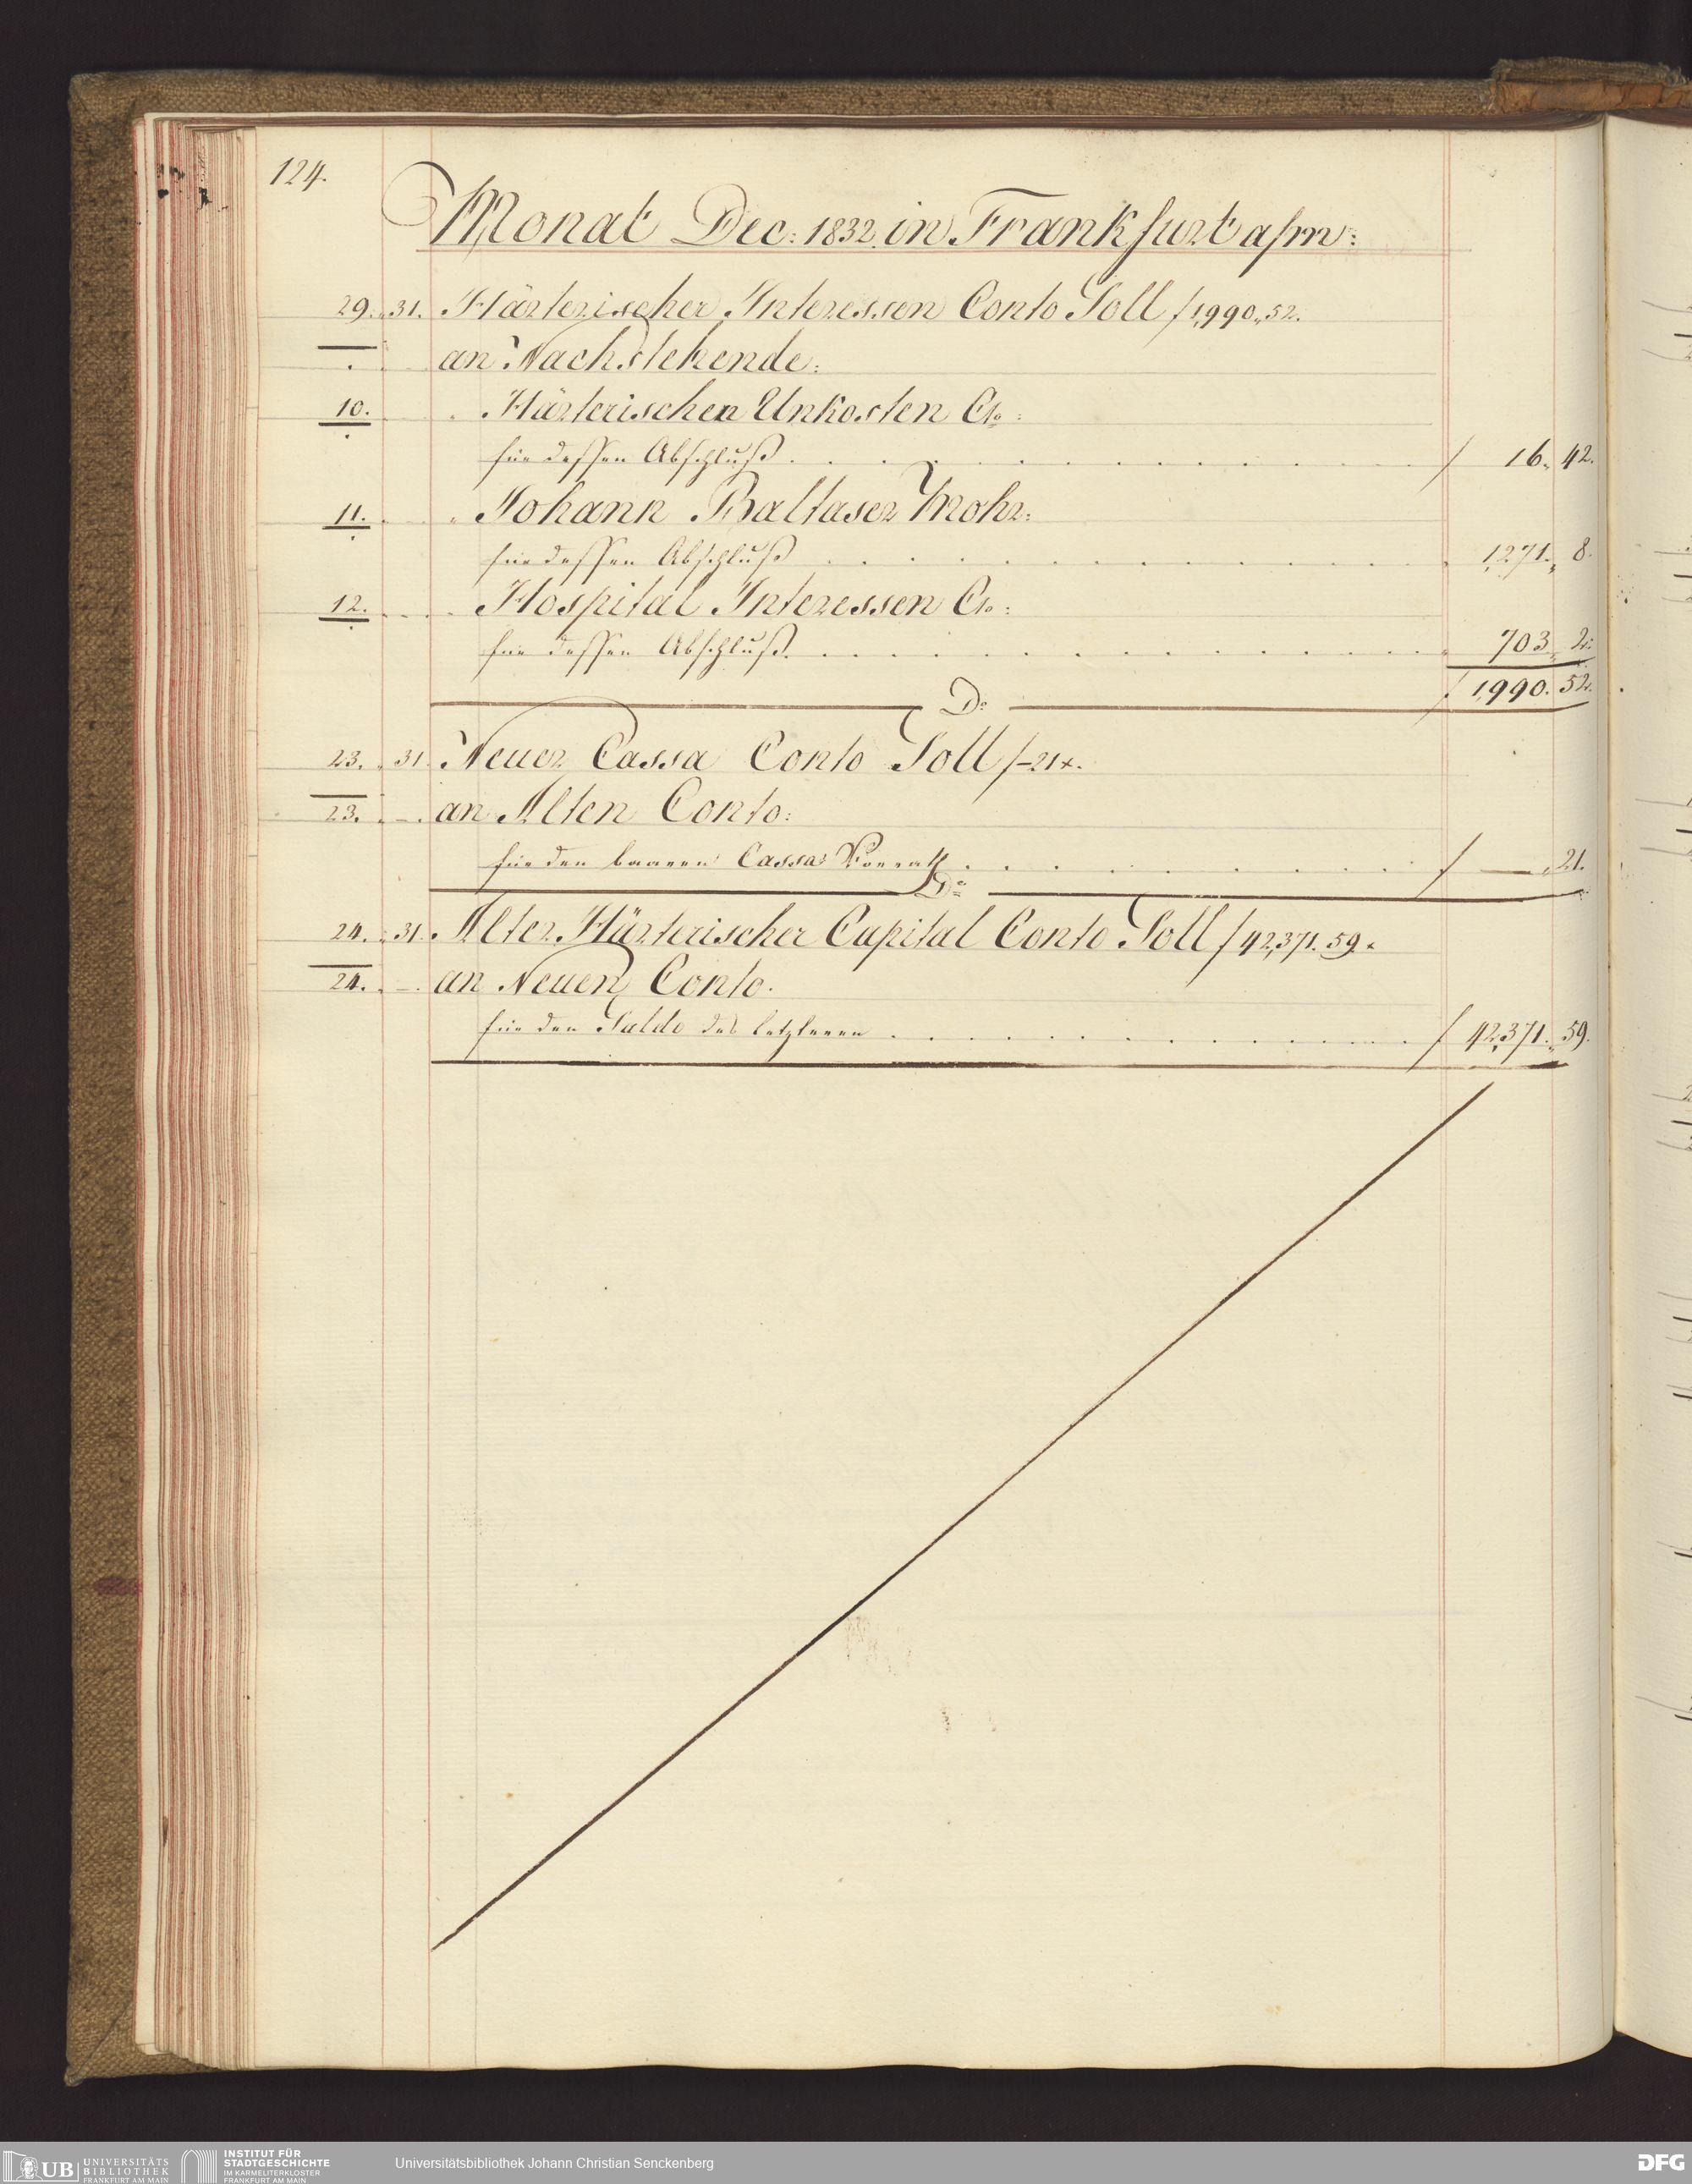 124.
Monat Dec: 1832. in Frankfurt a/m:
29. 31. Härterischer Interessen Conto Soll f 1,990,,52.
an Nachstehende:
10. Härterischen Unkosten Cto:
für dessen Abschluß f 16,, 42.
11. Johann Baltaser Mohr:
für dessen Abschluß 1,271,, 8.
12. Hospital Interessen Cto:
für dessen Abschluß 703,, 2.
f 1,990. 52.
Do
23. 31. Neuer Cassa Conto Soll f - 21 x.
23. - an Alten Conto:
für den baaren Cassa Vorrath f — ,,21.
Do
24. 31. Alter Härterischer Capital Conto Soll f 42,371. 59. x
24. - an Neuen Conto.
für den Saldo des letzteren f 42,371,, 59.
UB UNIVERSITÄTS
BIBLIOTHEK
FRANKFURT AM MAIN
INSTITUT FÜR
STADTGESCHICHTE
IM KARMELITERKLOSTER
FRANKFURT AM MAIN
Universitätsbibliothek Johann Christian Senckenberg
DFG